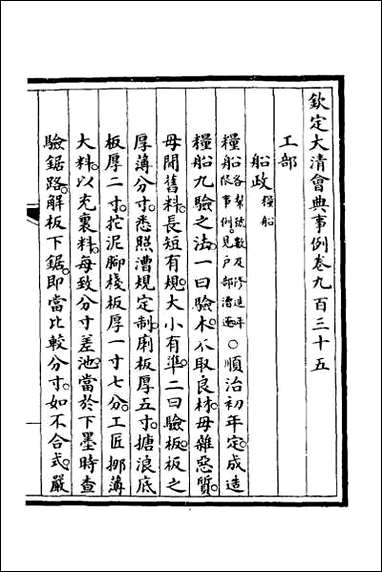 欽定大清會典事例卷九百三十五
工部
船政糧船
糧船各幫號數及修造年限事例。見戶部漕運。○順治初年定。成造
糧船九驗之法。一曰驗木。必取良材。毋雜惡質。
毋間舊料。長短有規。大小有準。二曰驗板。板之
厚薄分寸。悉照漕規定制。廂板厚五寸。搪浪底
板厚二寸。拕泥腳棧板厚一寸七分。工匠挪薄
大料。以充裏料。每致分寸差池。當於下墨時查
驗鋸路。解板下鋸。即當比較分寸。如不合式。嚴